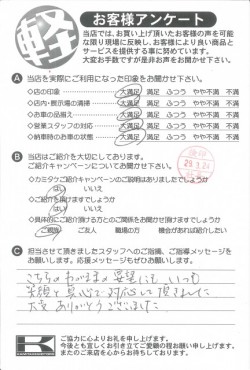 軽
お客様アンケート
当店では、お買い上げ頂いたお客様の声を可能
な限り現場に反映し、お客様により良い商品と
サービスを提供する事に努めています。
大変お手数ですが是非お声をお聞かせ下さい。
A 当店を実際にご利用になった印象をお聞かせ下さい。
◇店の印象 大満足 満足 ふつう やや不満 不満
◇店内・展示場の清掃 大満足 満足 ふつう やや不満 不満
◇お車の品揃え 大満足 満足 ふつう やや不満 不満
◇営業スタッフの対応 大満足 満足 ふつう やや不満 不満
◇納車時のお車の状態 大満足 満足 ふつう やや不満 不満
B 当店はご紹介を大切にしております。
ご紹介キャンペーンについてお聞かせ下さい。
◇カミタケご紹介キャンペーンのご説明はありましたでしょうか
はい いいえ
◇ご紹介を頂けますでしょうか
はい いいえ
◇具体的にご紹介頂ける方とのご関係をお聞かせ頂けますでしょうか
ご親戚 ご友人 職場の方 機会があれば紹介したい
C 担当させて頂きましたスタッフへのご指摘、ご指導メッセージを
お願いします。応援メッセージもぜひお願いします。
こちらのわがままな要望にも いつも
笑顔と真心で対応して頂きました
大変 ありがとうございました
K
ご協力に心よりお礼を申し上げます。
今後とも宜しくお引き立てご愛顧の程お願い申し上げます。
またのご来店を心からお待ちしております。